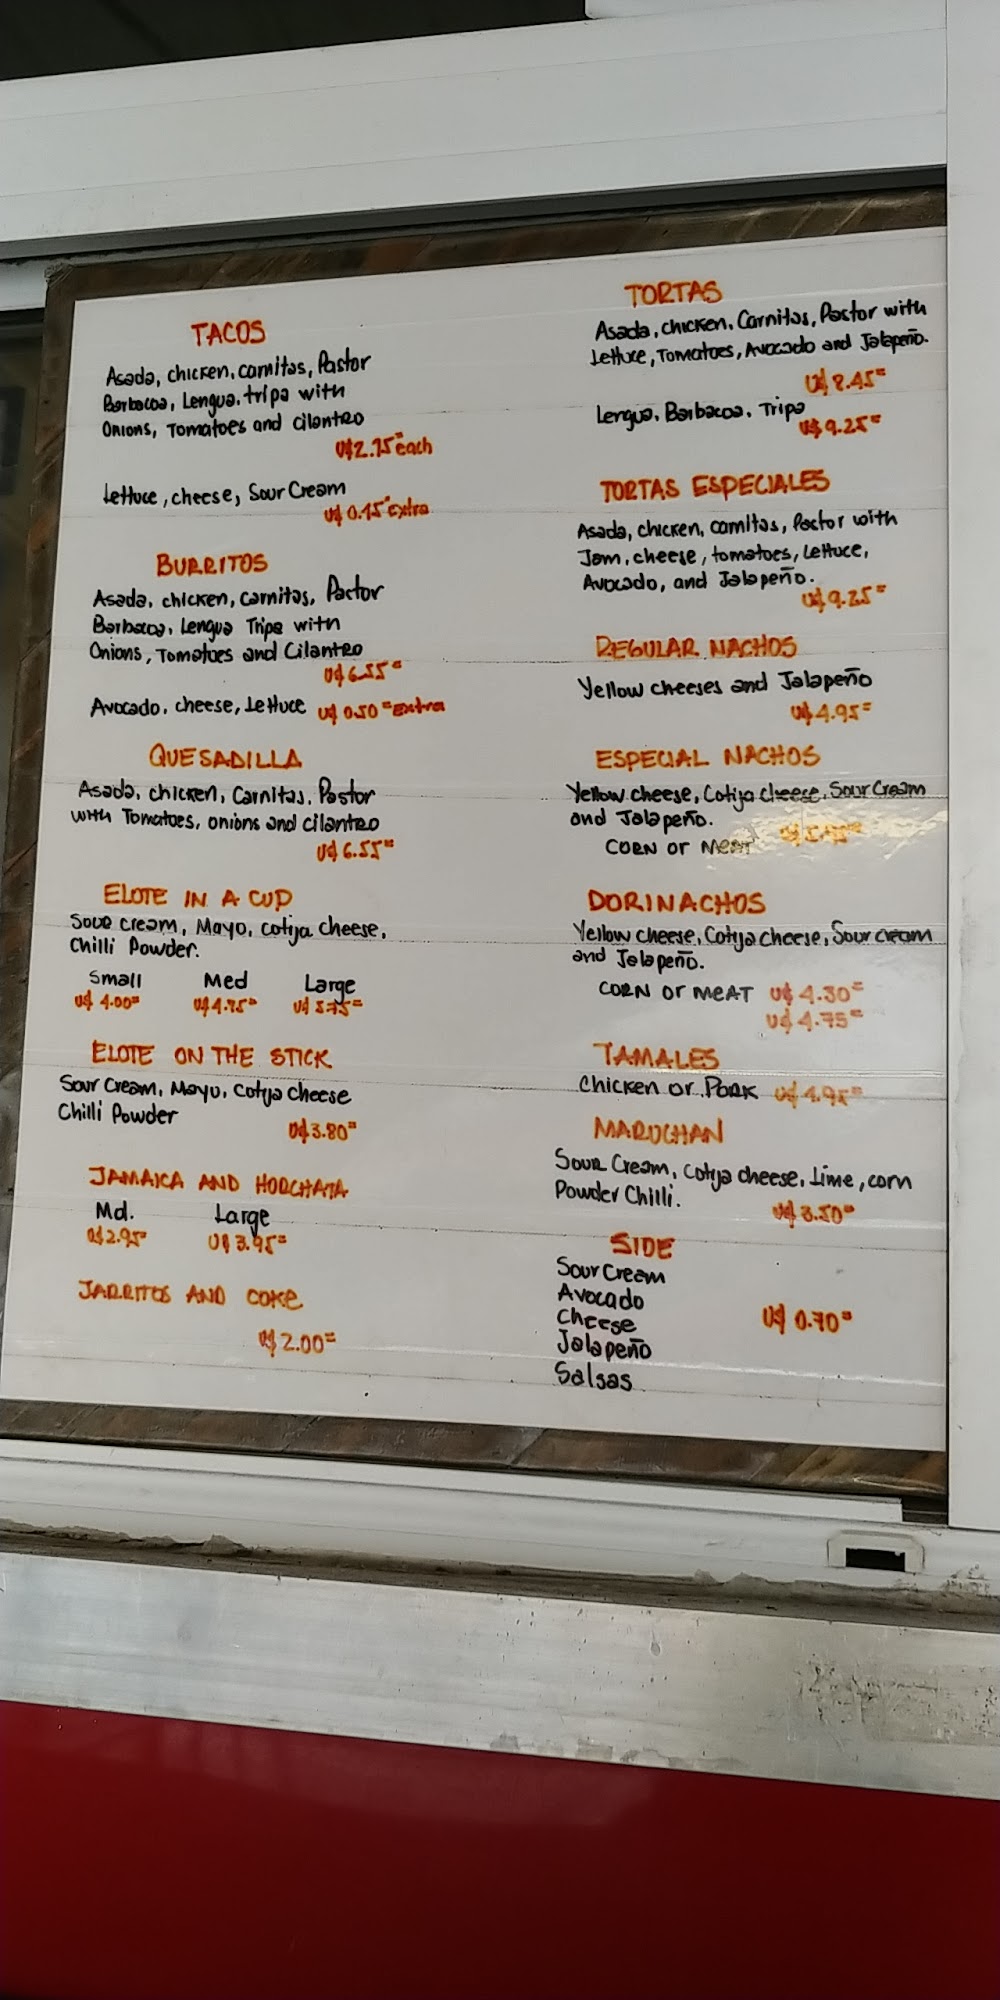 TACOS
Asada, chicken, carnitas, Pastor
Barbacoa, Lengua, tripa with
Onions, Tomatoes and cilantro
U$2.75 each
Lettuce, cheese, Sour Cream
U$ 0.15 Extra
BURRITOS
Asada, chicken, carnitas, Pastor
Barbacoa, Lengua Tripa with
Onions, Tomatoes and Cilantro
U$6.55
Avocado, cheese, Lettuce U$ 0.50 Extra
QUESADILLA
Asada, chicken, Carnitas, Pastor
with Tomatoes, onions and cilantro
U$6.55
ELOTE IN A CUP
Sour cream, Mayo, cotija cheese,
Chilli Powder.
Small Med Large
U$ 4.00 U$4.75 U$ 5.75
ELOTE ON THE STICK
Sour Cream, Mayo, Cotija cheese
Chilli Powder
U$3.80
JAMAICA AND HORCHATA
Md. Large
U$2.95 U$3.95
JARRITOS AND COKE
U$2.00
TORTAS
Asada, chicken, Carnitas, Pastor with
Lettuce, Tomatoes, Avocado and Jalapeño.
U$ 8.45
Lengua, Barbacoa, Tripa
U$9.25
TORTAS ESPECIALES
Asada, chicken, carnitas, Pastor with
Jam, cheese, tomatoes, Lettuce,
Avocado, and Jalapeño.
U$9.25
REGULAR NACHOS
Yellow cheeses and Jalapeño
U$4.95
ESPECIAL NACHOS
Yellow cheese, Cotija cheese, Sour Cream
and Jalapeño.
CORN or MEAT
DORINACHOS
Yellow cheese, Cotija cheese, Sour cream
and Jalapeño.
CORN or MEAT U$ 4.30
U$ 4.75
TAMALES
Chicken or PORK U$4.95
MARUCHAN
Sour Cream, Cotija cheese, Lime, corn
Powder Chilli.
U$ 3.50
SIDE
Sour Cream
Avocado
Cheese U$ 0.70
Jalapeño
Salsas